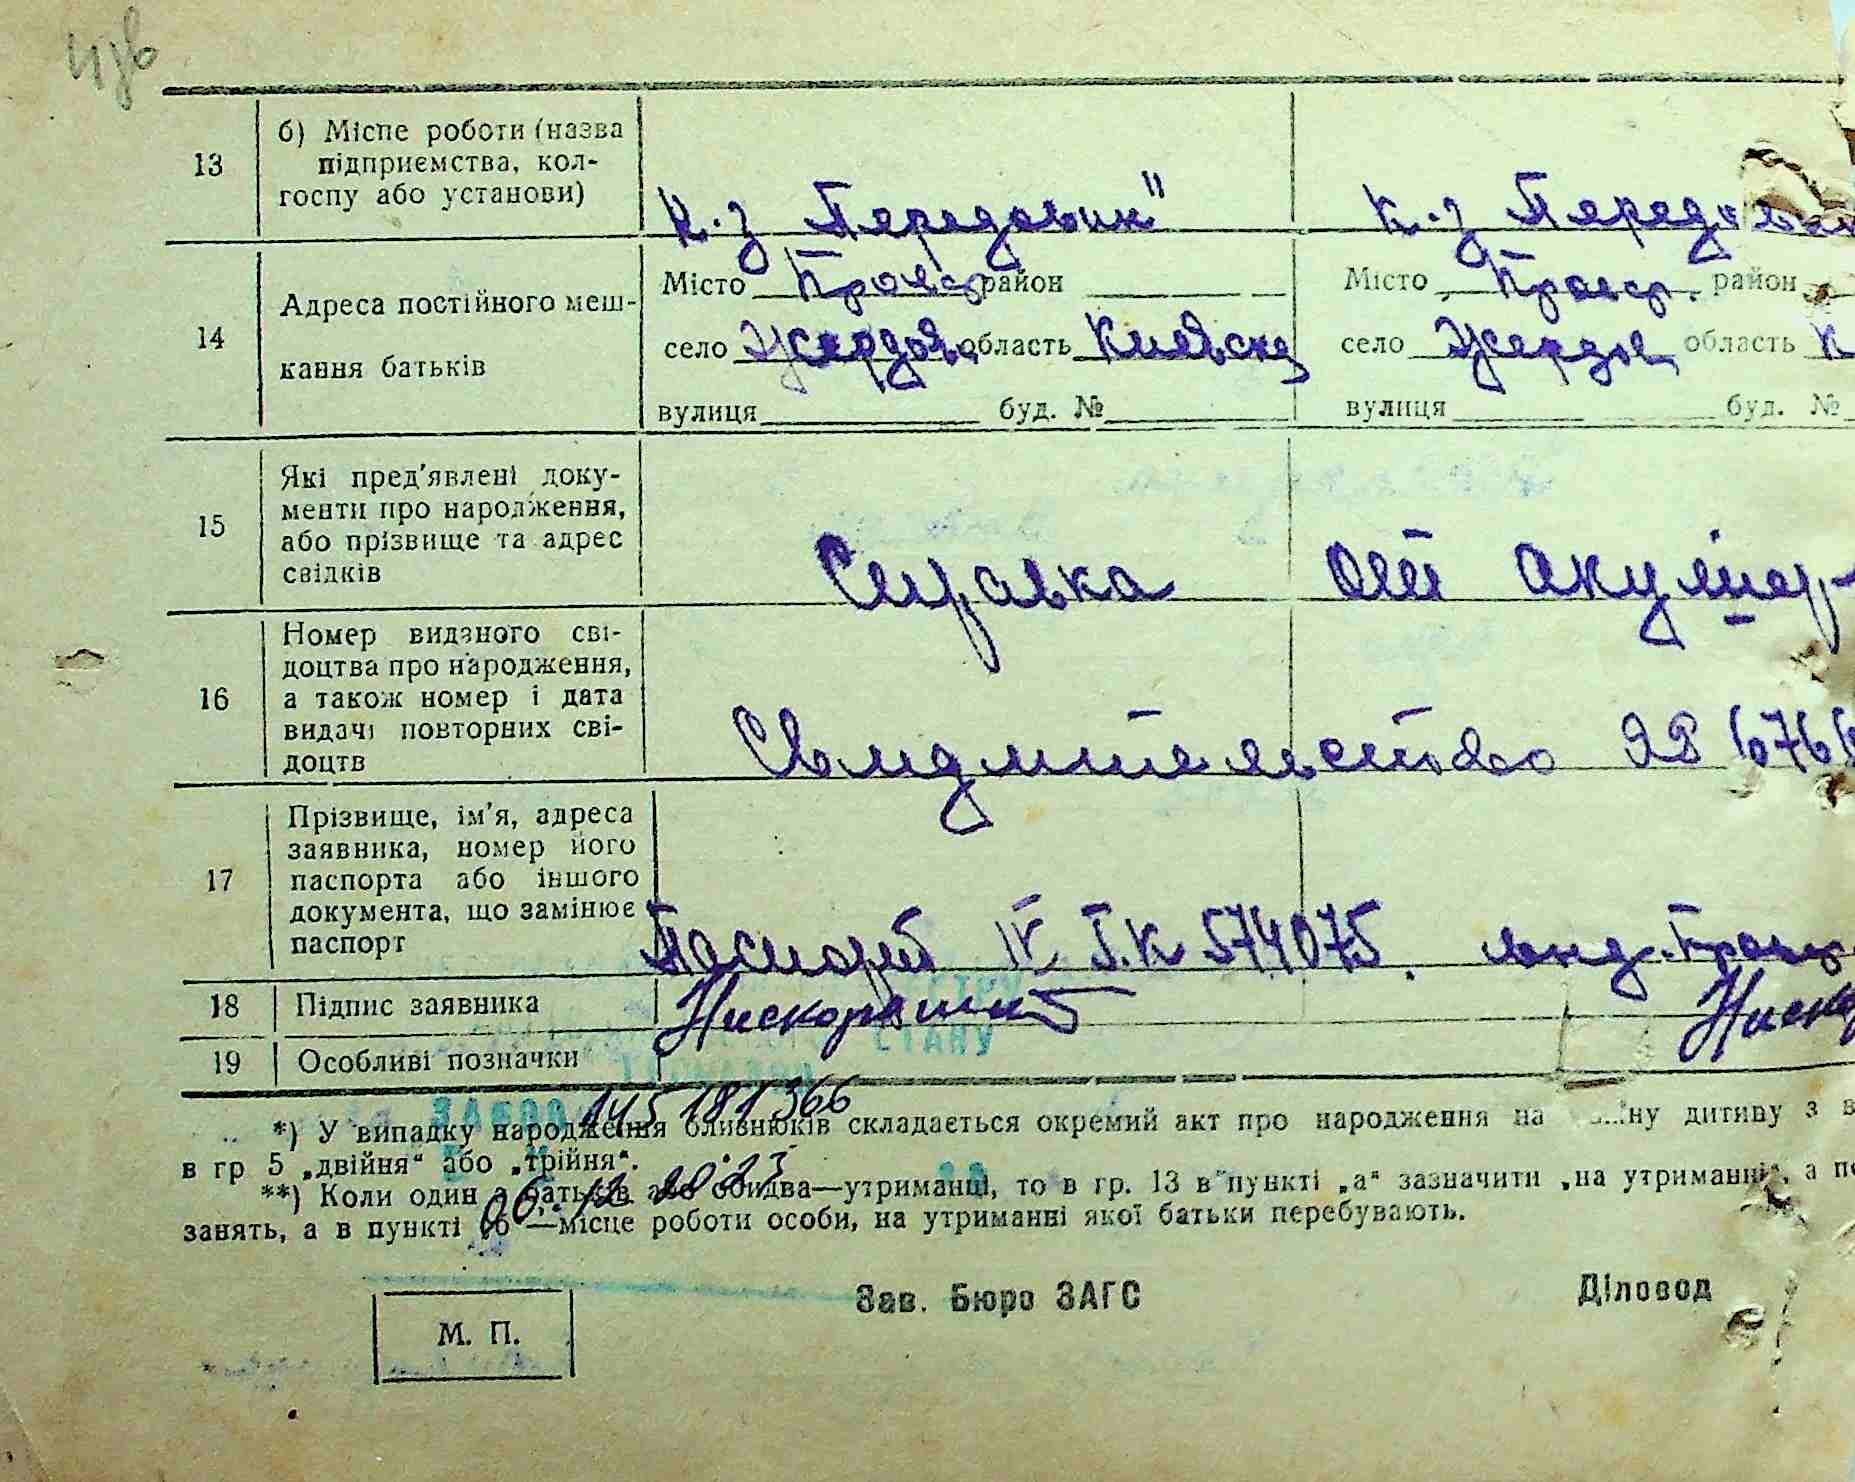 13
б) Місце роботи (назва
підприємства, кол-
госпу або установи)
к-з Передовик"
к-з Передовик
14
Адреса постійного меш-
кання батьків
Місто район
Місто район
село область Киевска
село область К
вулиця буд. №
вулиця буд. №
15
Які пред'явлені доку-
менти про народження,
або прізвище та адрес
свідків
Справка от акушер-
16
Номер виданого сві-
доцтва про народження,
а також номер і дата
видачі повторних сві-
доцтв
Свидительство
17
Прізвище, ім'я, адреса
заявника, номер його
паспорта або іншого
документа, що замінює
паспорт
Паспорт 574075
18
Підпис заявника
19
Особливі позначки
СТАНУ
145181366
*) У випадку народження близнюків складається окремий акт про народження на дитину з
в гр 5 „двійня“ або „трійня“.
06.12.2023
**) Коли один з батьків або обидва—утриманці, то в гр. 13 в пункті „а“ зазначити „на утриманні“, а
занять, а в пункті „б“—місце роботи особи, на утриманні якої батьки перебувають.
М. П.
Зав. Бюро ЗАГС
Діловод